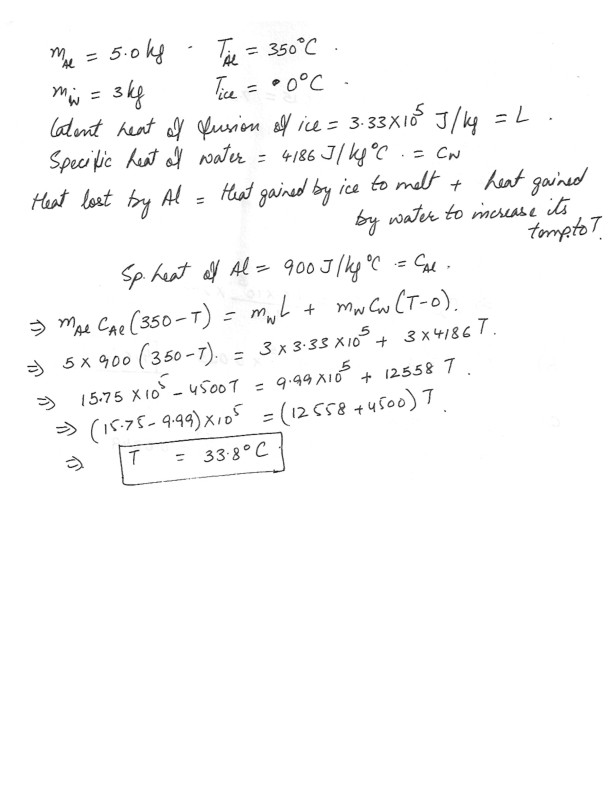 m_Al = 5.0 kg . T_Al = 350°C .
m_w = 3 kg T_ice = 0°C .
Latent heat of fusion of ice = 3.33X10^5 J/kg = L .
Specific heat of water = 4186 J/kg°C . = C_W
Heat lost by Al = Heat gained by ice to melt + heat gained
by water to increase its
temp. to T.
Sp. heat of Al = 900 J/kg°C = C_Al .
⇒ m_Al C_Al (350-T) = m_w L + m_w C_w (T-0).
⇒ 5 x 900 (350-T). = 3 x 3.33 X10^5 + 3 x 4186 T.
⇒ 15.75 X10^5 - 4500T = 9.99 X10^5 + 12558 T.
⇒ (15.75 - 9.99) X10^5 = (12558 + 4500) T.
⇒ T = 33.8°C